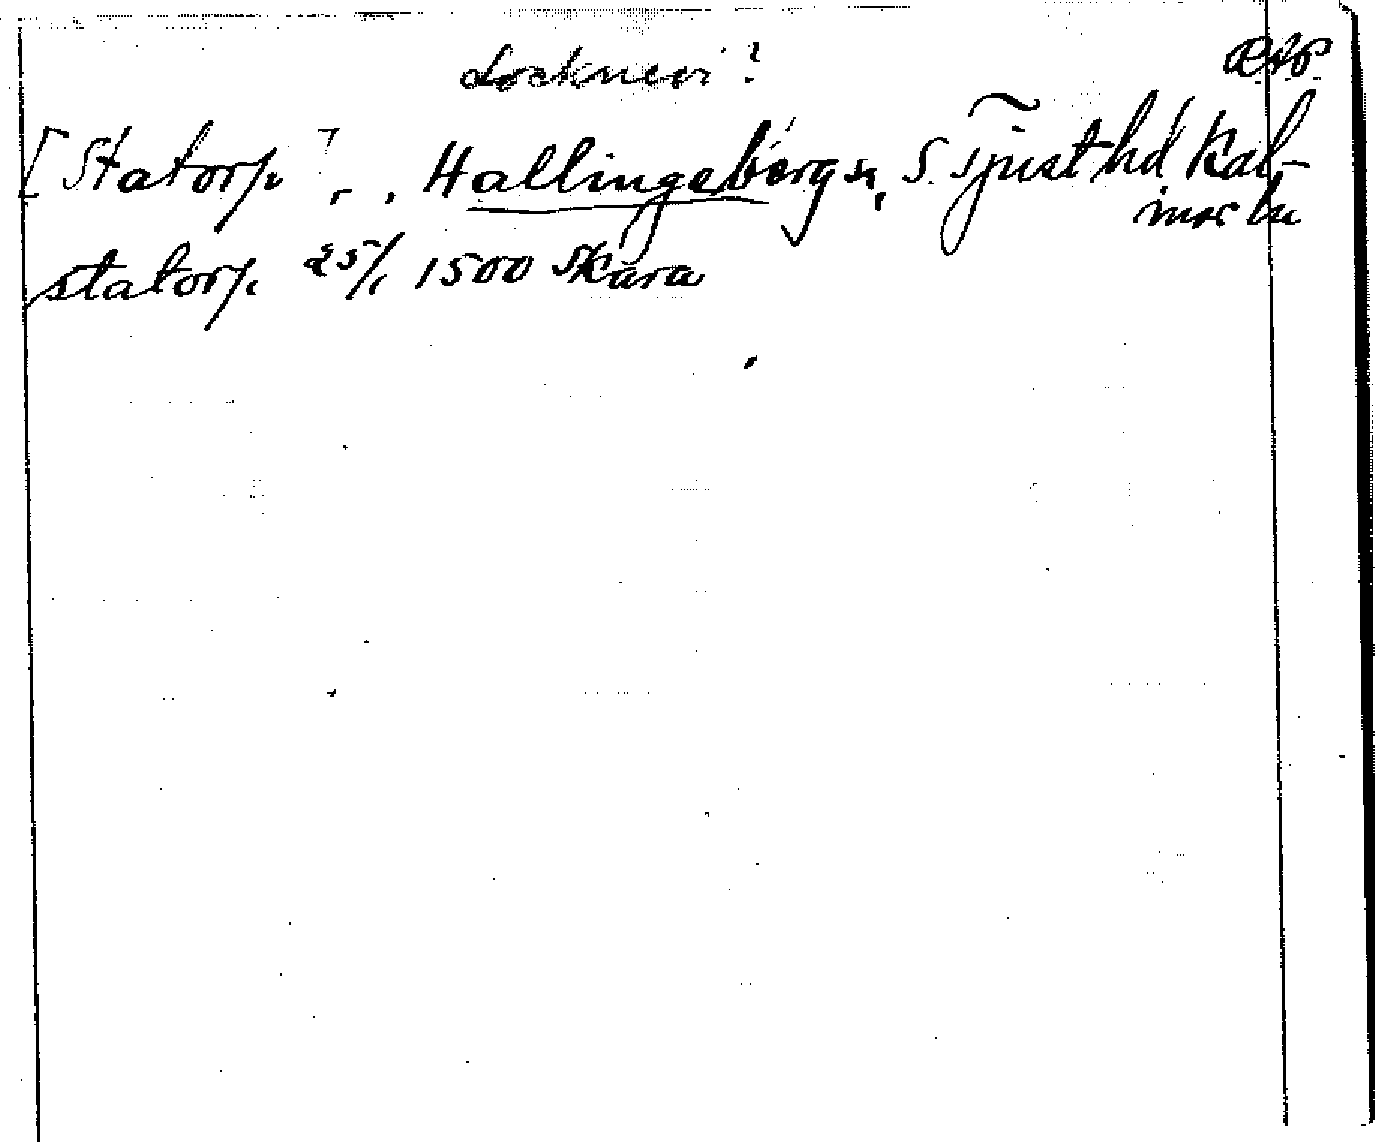 Locknevi?
[Statorp ], , Hallingeberg sn, S. Tjust hd Kal-
mar län
statorp 25/1 1500 Skara